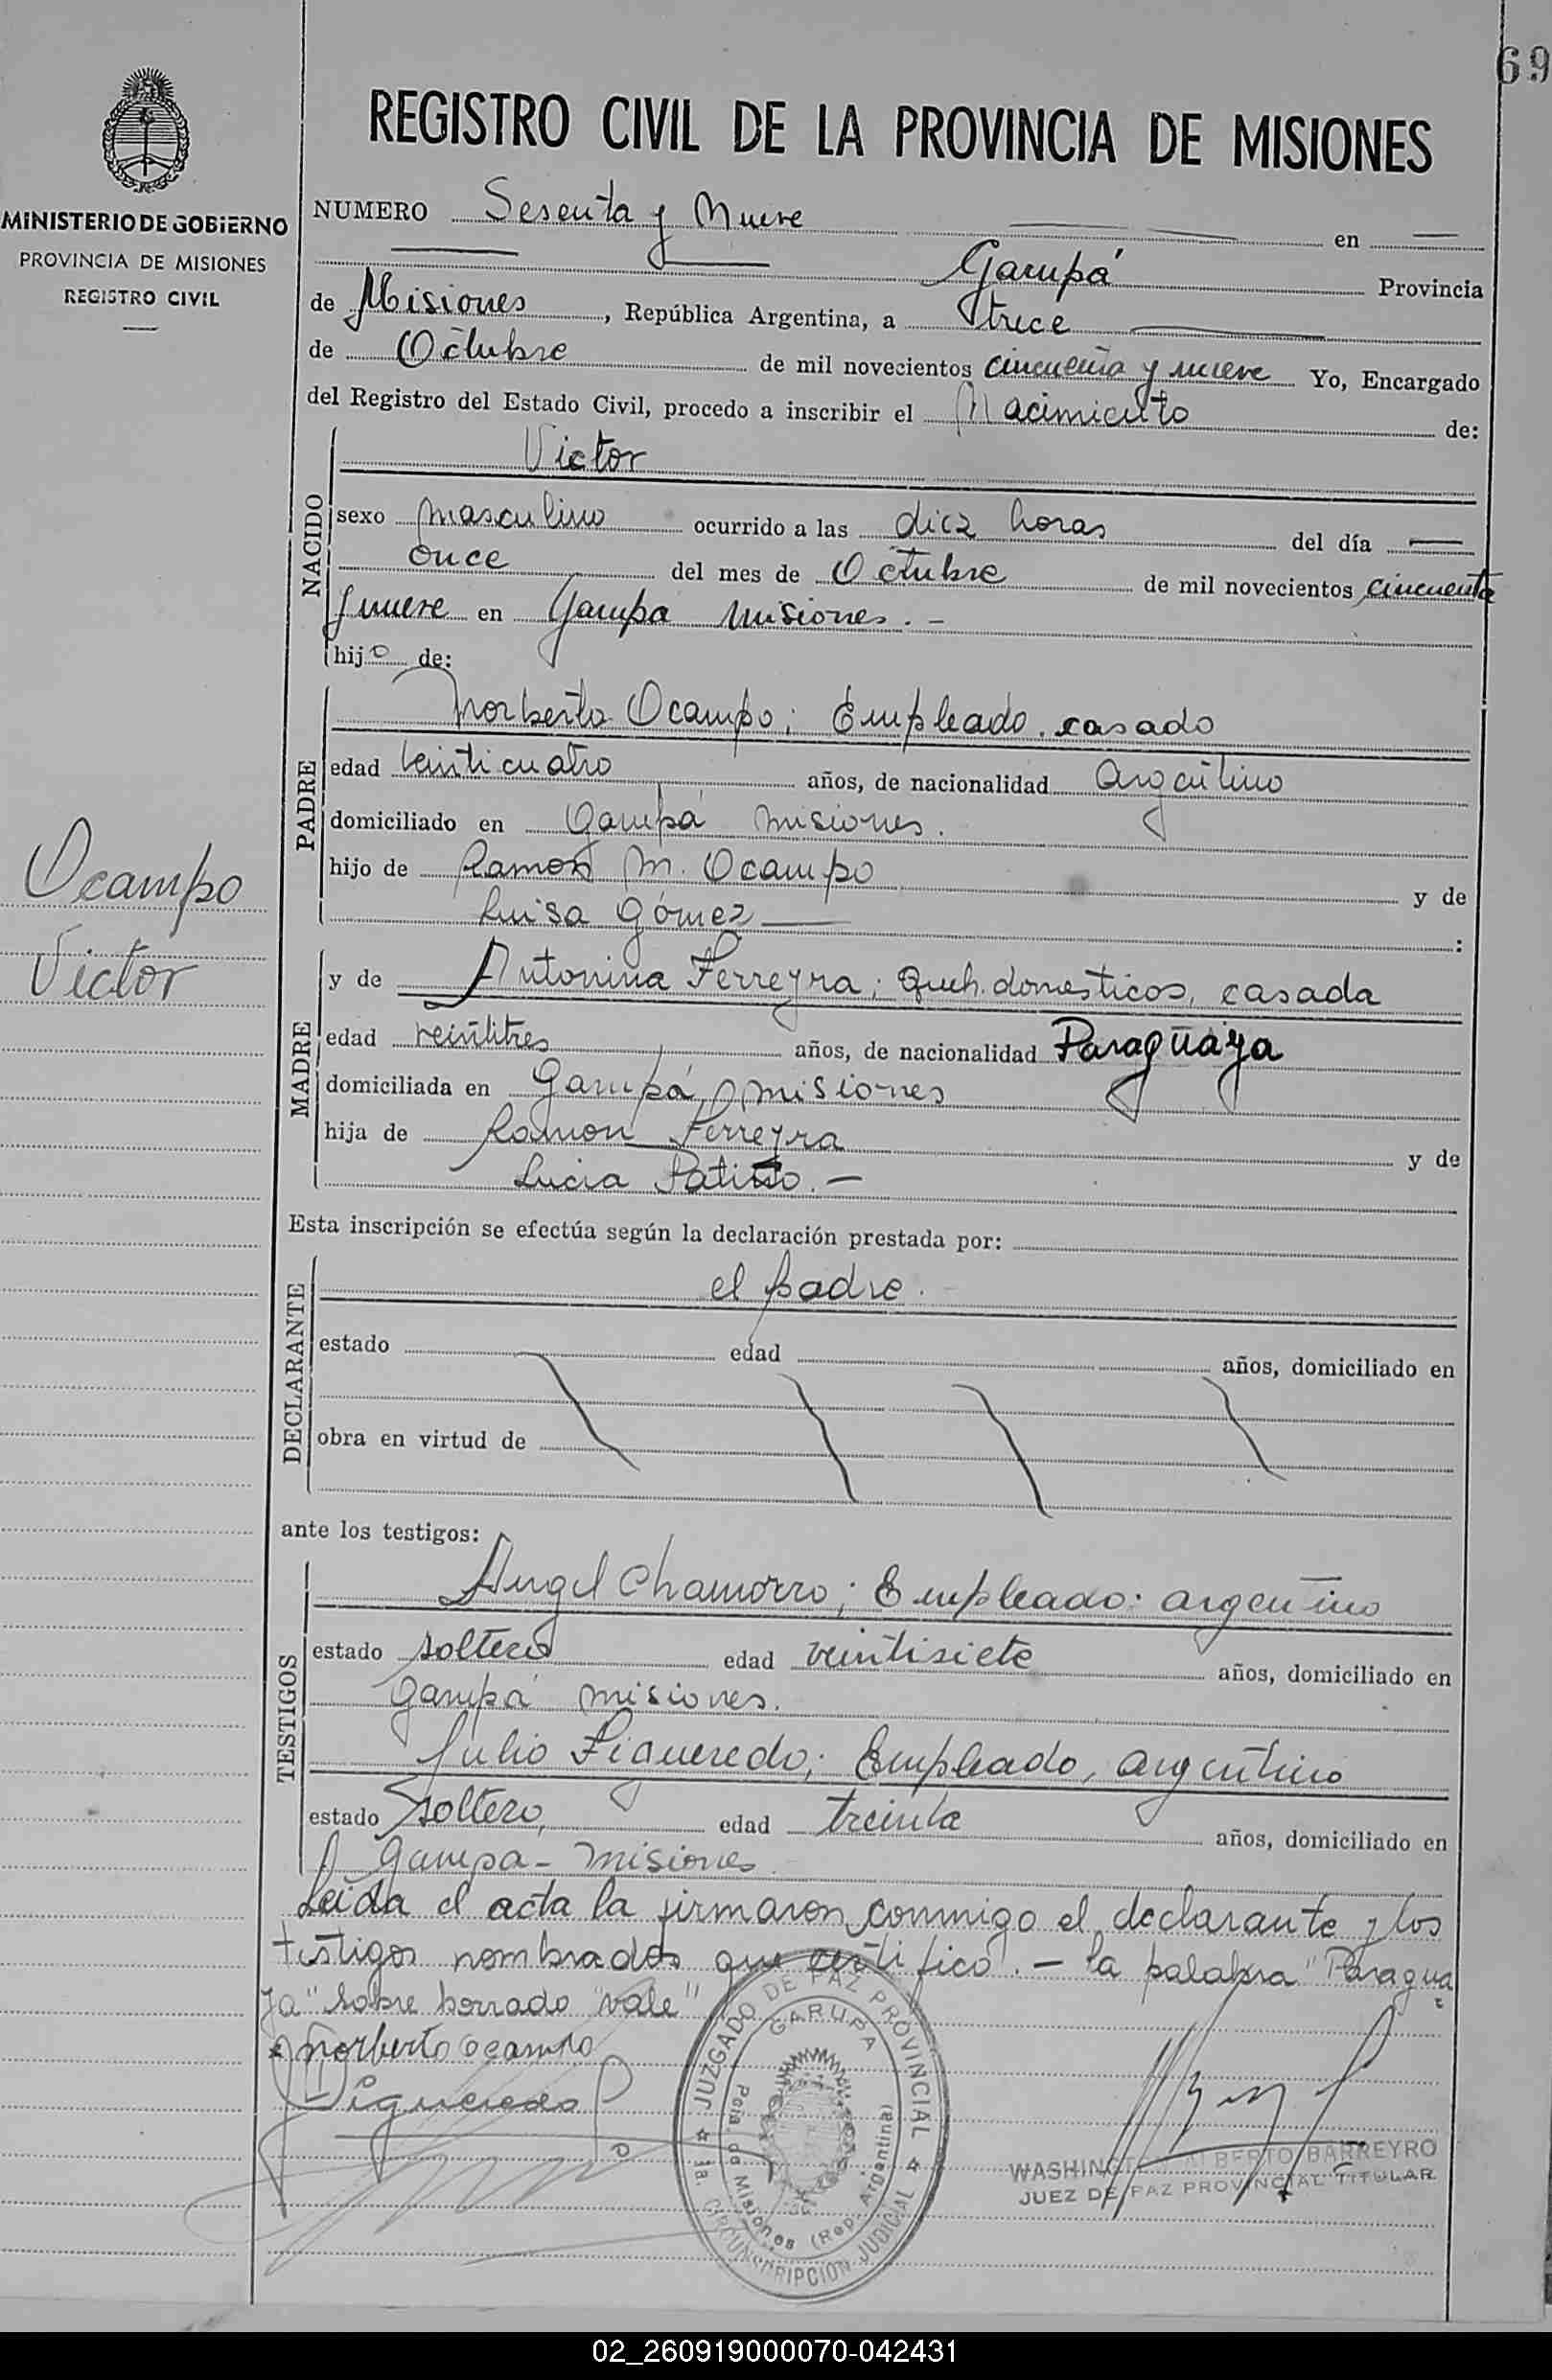 69
REGISTRO CIVIL DE LA PROVINCIA DE MISIONES
MINISTERIO DE GOBIERNO
PROVINCIA DE MISIONES
REGISTRO CIVIL
NUMERO Sesenta y Nueve en
Garupá Provincia
de Misiones, República Argentina, a trece
de Octubre de mil novecientos cincuenta y nueve Yo, Encargado
del Registro del Estado Civil, procedo a inscribir el Nacimiento de:
NACIDO
Victor
sexo masculino ocurrido a las diez horas del día
once del mes de Octubre de mil novecientos cincuenta
y nueve en Garupa Misiones.-
hijo de:
PADRE
Norberto Ocampo; Empleado, casado
edad veinticuatro años, de nacionalidad argentino
domiciliado en Garupá Misiones.
hijo de Ramon M. Ocampo y de
Luisa Gómez :
Ocampo
Victor
MADRE
y de Antonina Ferreyra; Queh. domesticos, casada
edad veintitres años, de nacionalidad Paraguaya
domiciliada en Garupá, misiones
hija de Ramon Ferreyra y de
Lucia Patiño.-
Esta inscripción se efectúa según la declaración prestada por:
DECLARANTE
el padre.
estado edad años, domiciliado en
obra en virtud de
ante los testigos:
TESTIGOS
Angel Chamorro; Empleado; argentino
estado soltero edad veintisiete años, domiciliado en
Garupá misiones.
Julio Figueredo; Empleado, argentino
estado soltero, edad treinta años, domiciliado en
Garupa- misiones
Leida el acta la firmaron conmigo el declarante y los
testigos nombrados que certifico.- la palabra "Paragua
ya" sobre borrado "vale"
Norberto Ocampo
Figueredo
JUZGADO DE PAZ PROVINCIAL
GARUPA
Pcia. de Misiones (Rep. Argentina)
1a. CIRCUNSCRIPCION JUDICIAL
WASHINGTON ALBERTO BARREYRO
JUEZ DE PAZ PROVINCIAL TITULAR
02_260919000070-042431